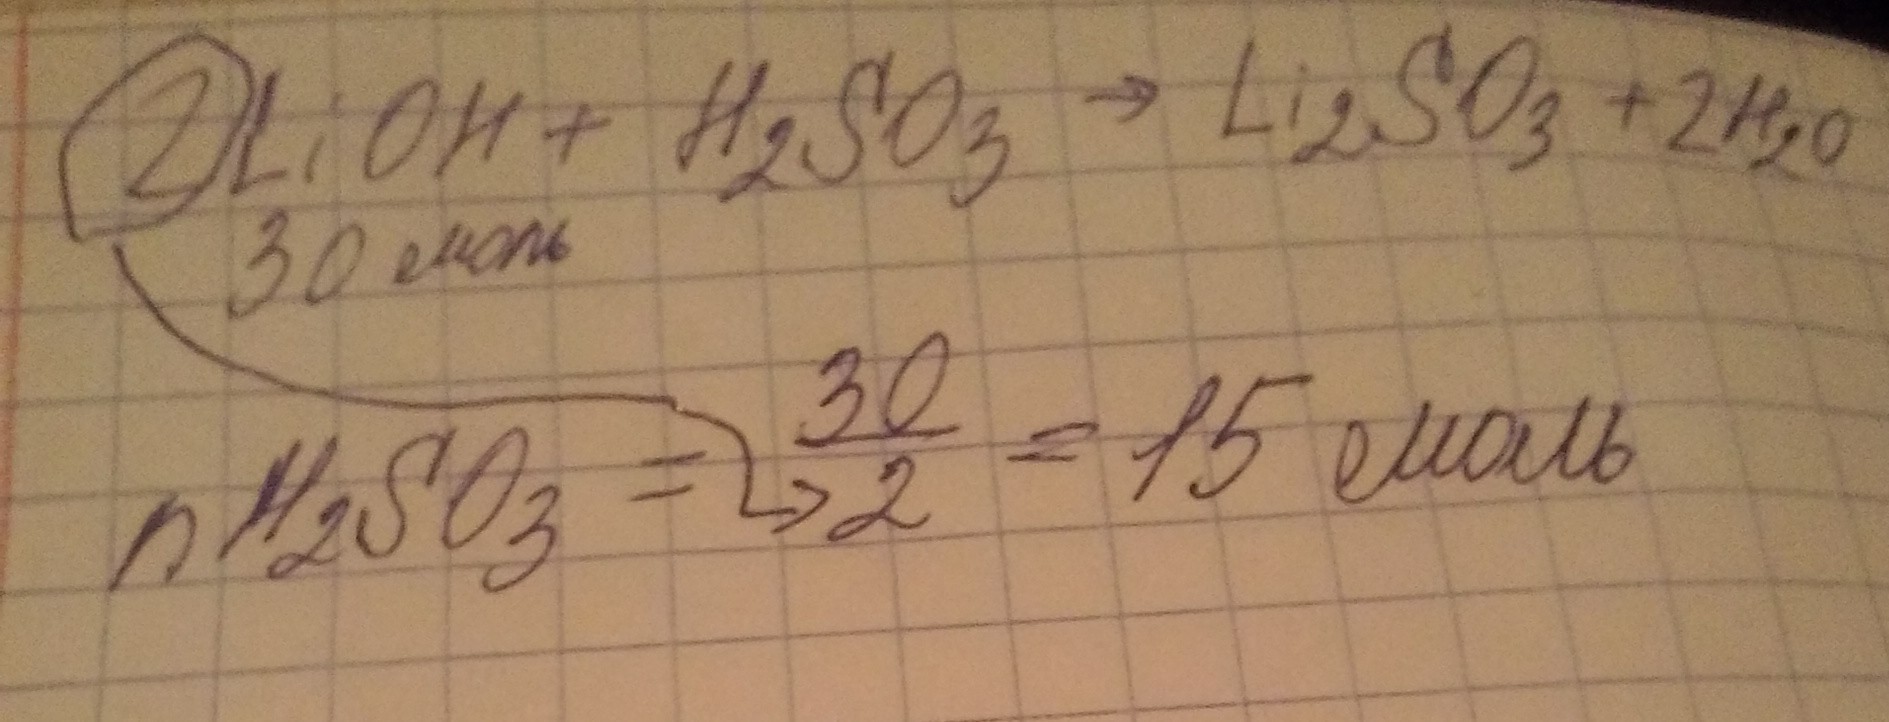 2LiOH + H₂SO₃ → Li₂SO₃ + 2H₂O
30 моль
nH₂SO₃ = 30/2 = 15 моль